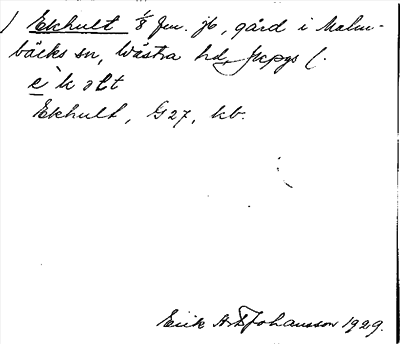 ) Ekhult 1/8 fm. jb, gård i Malm-
bäcks sn, Västra hd, Jkpgs l.
e`k ɔlt
Ekhult, G27, kb.
Erik Art Johansson 1929.